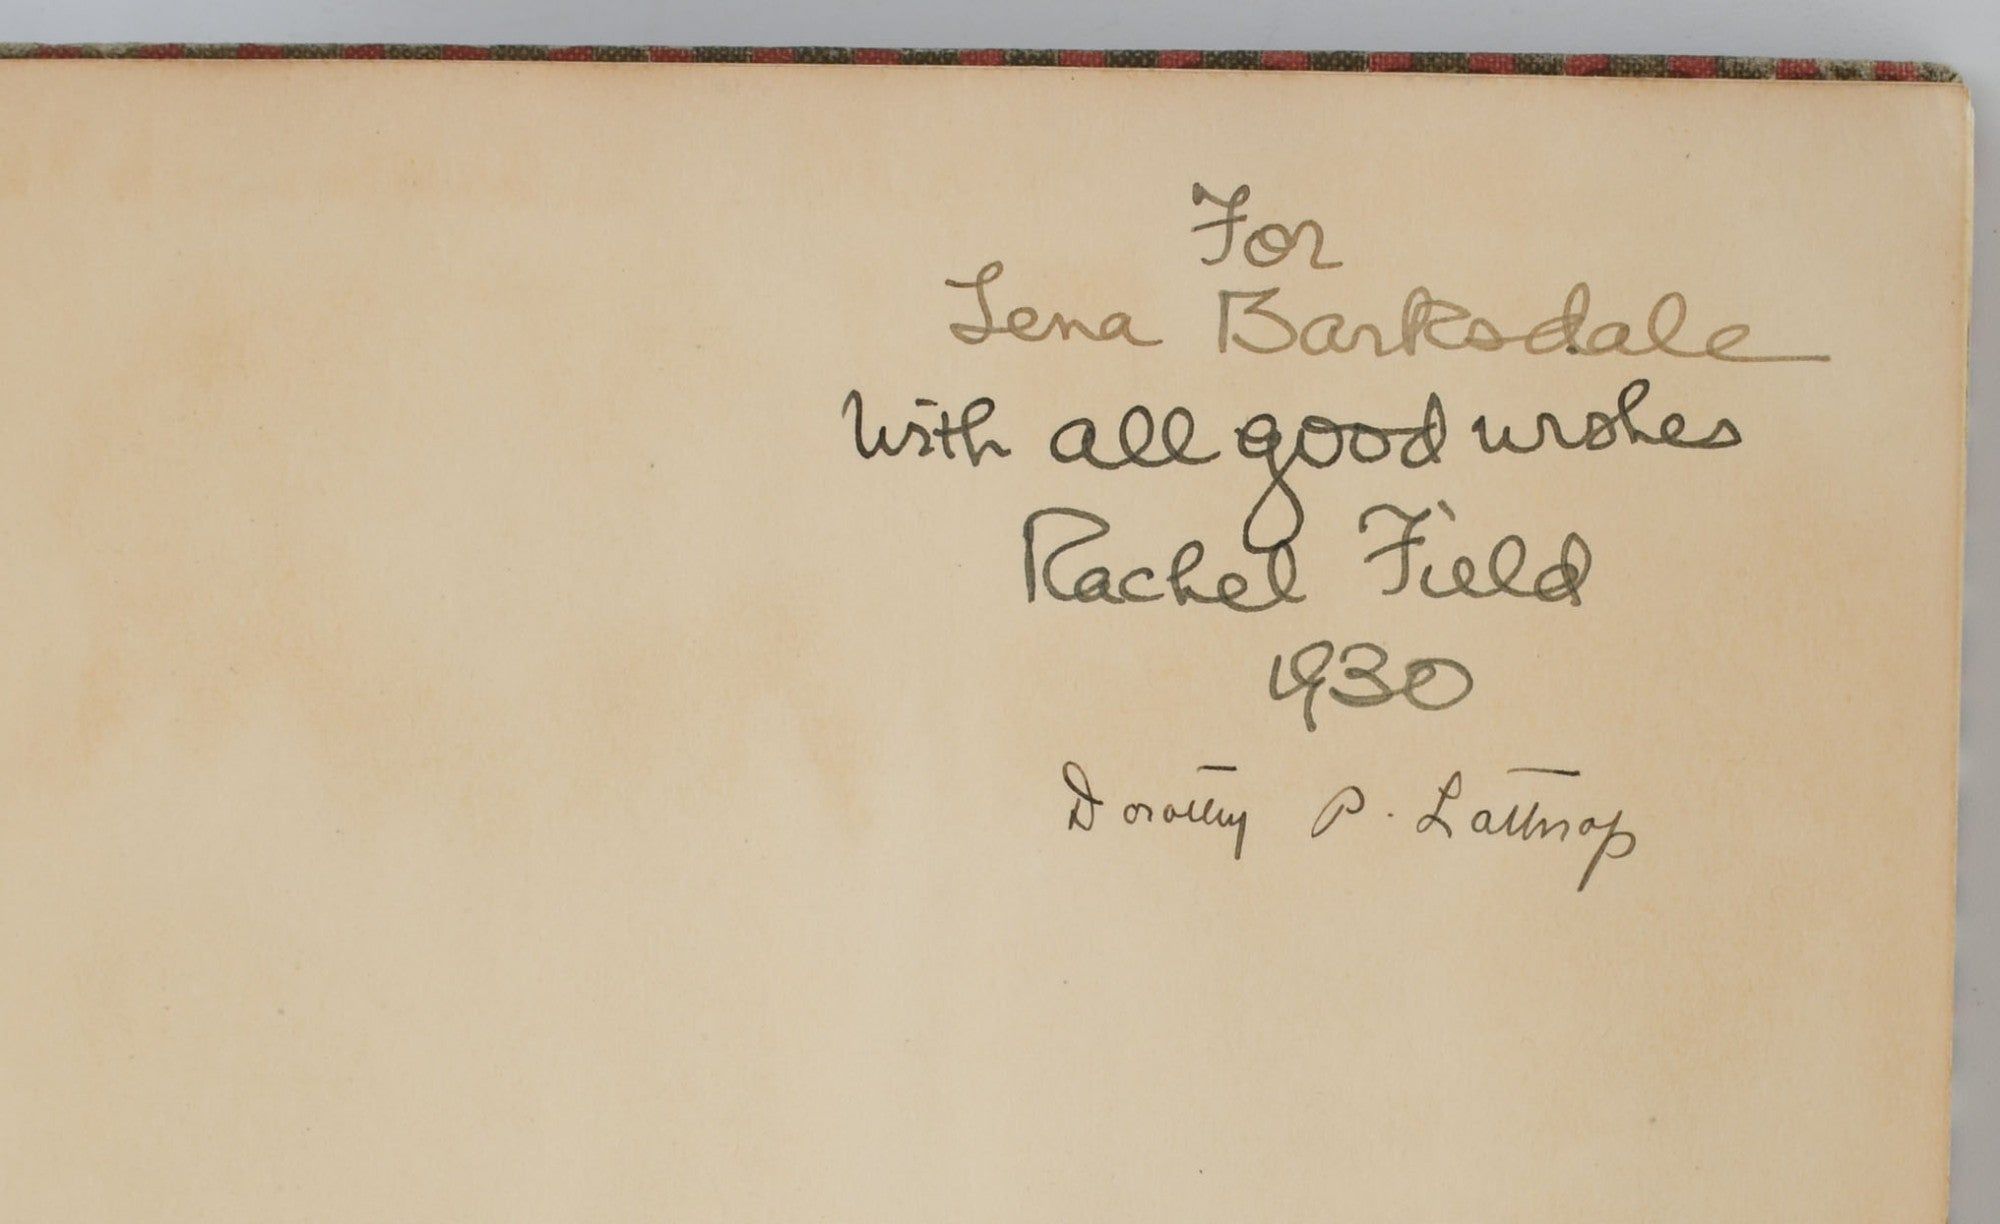 For
Lena Barksdale
With all good wishes
Rachel Field
1930
Dorothy P. Lathrop